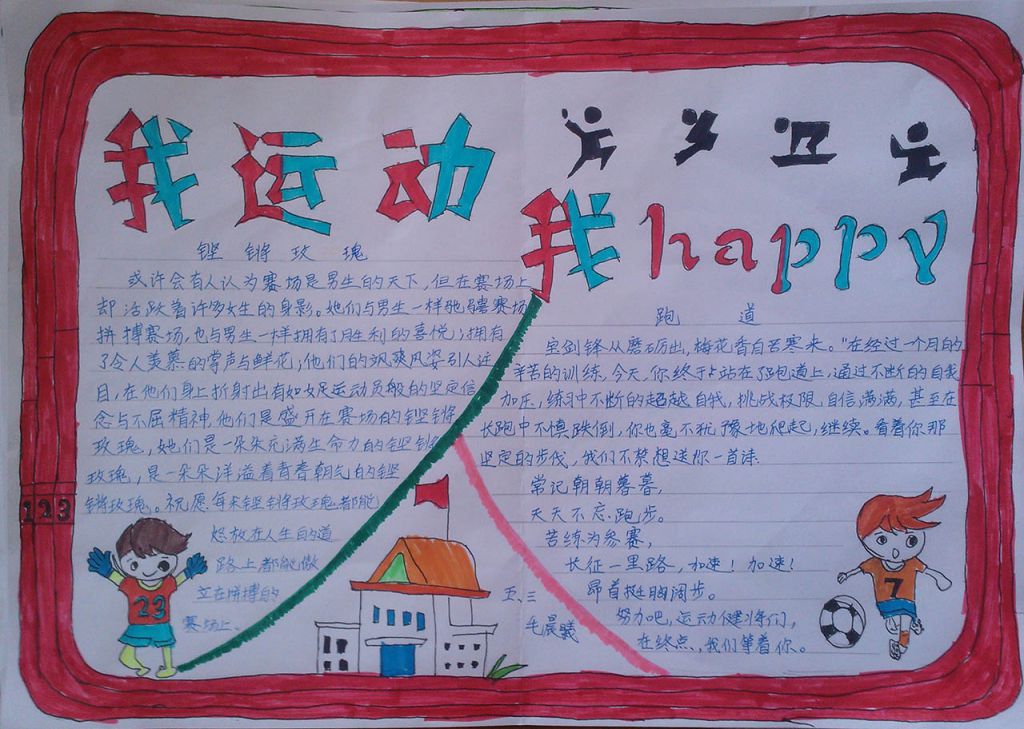 我运动
我happy
铿锵玫瑰
或许会有人认为赛场是男生的天下,但在赛场上
却活跃着许多女生的身影。她们与男生一样驰骋赛场
拼搏赛场,也与男生一样拥有了胜利的喜悦;拥有
了令人羡慕的掌声与鲜花;他们的飒爽风姿引人注
目,在他们身上折射出有如女足运动员般的坚定信
念与不屈精神,他们是盛开在赛场的铿锵
玫瑰,她们是一朵朵充满生命力的铿锵
玫瑰,是一朵朵洋溢着青春朝气的铿
锵玫瑰。祝愿每朵铿锵玫瑰都能
怒放在人生的道
路上都能傲
立在拼搏的
赛场上、
跑道
宝剑锋从磨砺出,梅花香自苦寒来。"在经过一个月的
辛苦的训练,今天,你终于站在了跑道上,通过不断的自我
加压,练习中不断的超越自我,挑战极限,自信满满,甚至在
长跑中不慎跌倒,你也毫不犹豫地爬起,继续。看着你那
坚定的步伐,我们不禁想送你一首诗.
常记朝朝暮暮,
天天不忘跑步。
苦练为参赛,
长征一里路,加速!加速!
昂首挺胸阔步。
努力吧,运动健将们,
在终点,我们等着你。
五、三
毛晨曦
123
23
7